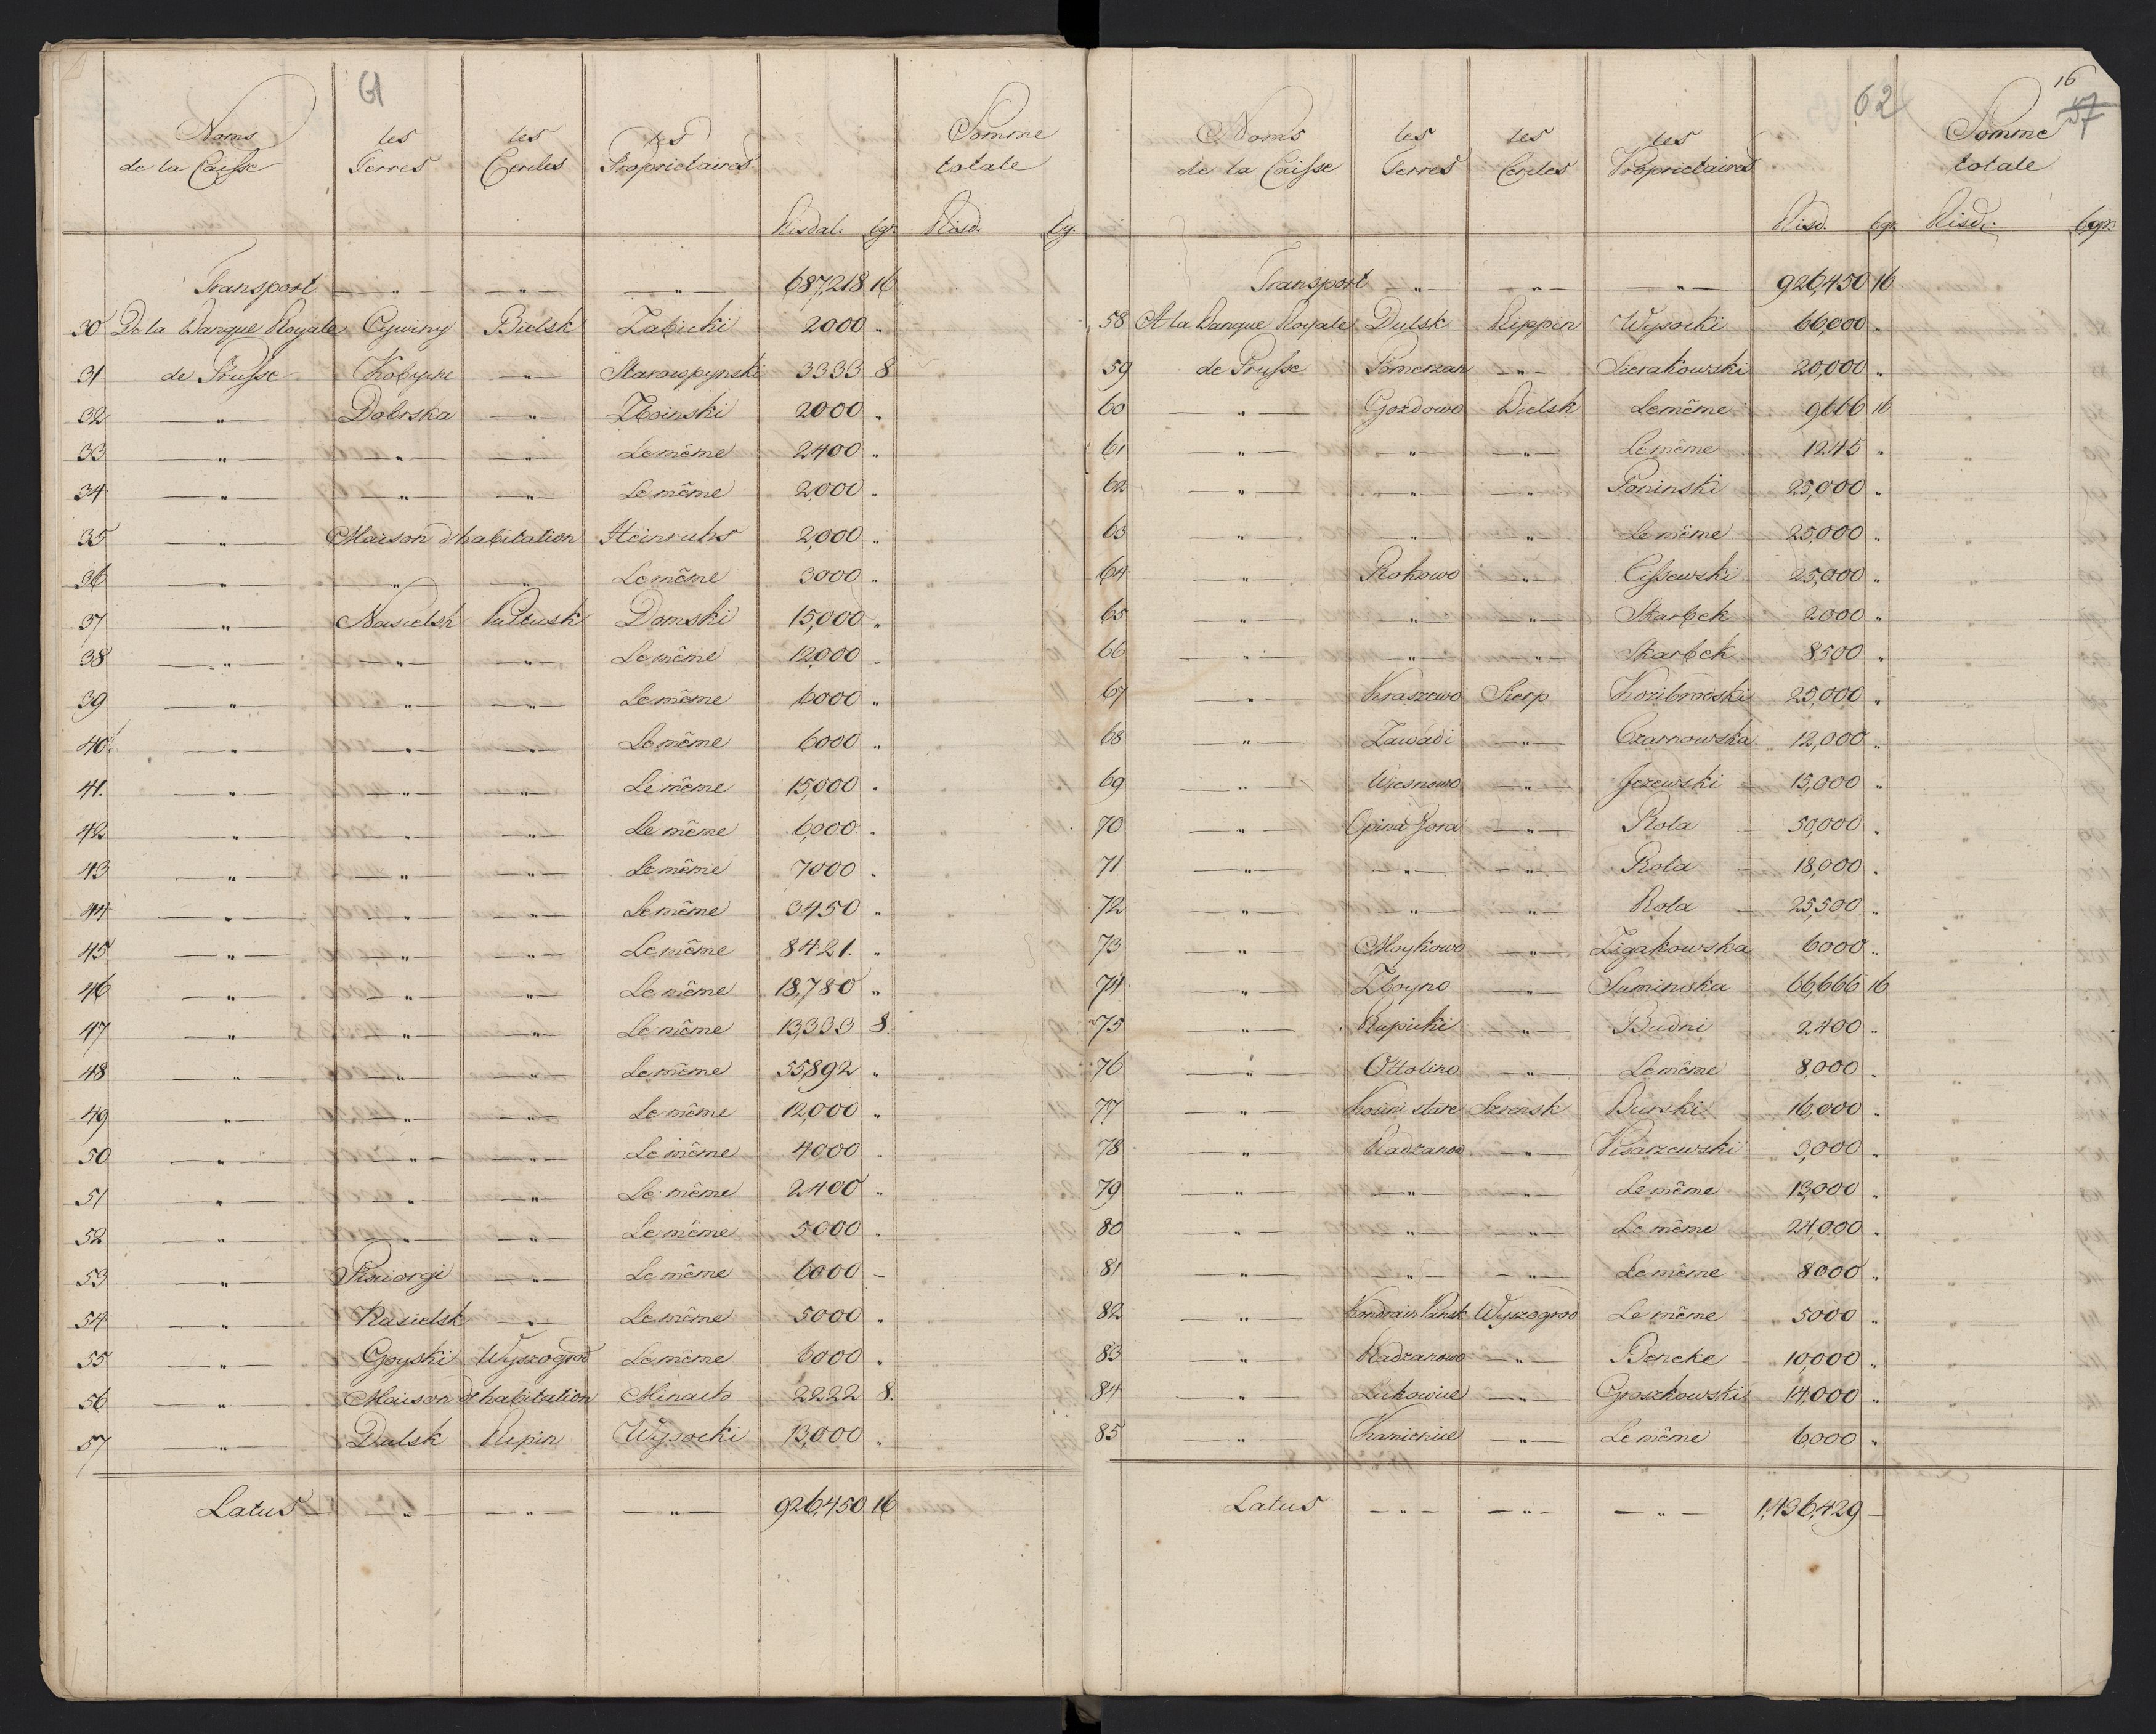 61
Noms de la Caisse | les Terres | les Cercles | les Proprietaires | Risdal. | bgr. | Somme totale Risd. | bg.
Transport — " — — " — — " — 687,218 16
30 De la Banque Royale Cywiny Bielsk Zabicki 2000 "
31 de Prusse Kobyrn — " — Starowpynski 3333 8
32 — " — Dobrska — " — Zboinski 2000 "
33 — " — — " — — " — Le même 2400 "
34 — " — — " — — " — Le même 2,000 "
35 — " — Maison d'habitation Heinrichs 2,000 "
36 — " — " " Le même 3000 "
37 — " — Nasielsk Pultusk Domski 15,000 "
38 — " — — " — — " — Le même 12,000 "
39 — " — — " — — " — Le même 6000 "
40 — " — — " — — " — Le même 6000 "
41. — " — — " — — " — Le même 15,000 "
42 — " — — " — — " — Le même 6,000 "
43 — " — — " — — " — Le même 7000 "
44 — " — — " — — " — Le même 3450 "
45 — " — — " — — " — Le même 8421. "
46 — " — — " — — " — Le même 18,780 "
47 — " — — " — — " — Le même 13,333 8.
48 — " — — " — — " — Le même 55,892 "
49 — " — — " — — " — Le même 12,000 "
50 — " — — " — — " — Le même 4000 "
51 — " — — " — — " — Le même 2400 "
52 — " — — " — — " — Le même 5000 "
53 — " — Psiorgi — " — Le même 6000 –
54 — " — Nasielsk — " — Le même 5000 "
55 — " — Goyski Wyszogrod Le même 6000 "
56 — " — Maison d'habitation Minach 2222 8.
57 — " — Dulsk Ripin Wysocki 13,000 "
Latus — " — — " — — " — 926,450 16
62
16
57
Noms de la Caisse | les Terres | les Cercles | les Proprietaires | Risd. | bgr. | Somme totale Risd. | bgr.
Transport — " — — " — — " — 926,450 16
58 A la Banque Royale Dulsk Rippin Wysocki 66,000 "
59 de Prusse Pomerzan — " — Sierakowski 20,000 "
60 — " — Gozdowo Bielsk Le même 9666 16
61 — " — — " — — " — Le même 1245 "
62 — " — — " — — " — Poninski 25,000 "
63 — " — — " — — " — Le même 25,000 "
64 — " — Rokowo — " — Cissewski 25,000 "
65 — " — — " — — " — Skarbek 2000 "
66 — " — — " — — " — Skarbek 8500 "
67 — " — Kraszewo Sierp Kozibrodski 25,000 "
68 — " — Zawadi — " — Czarnowska 12,000 "
69 — " — Wjesnowo — " — Jezewski 15,000 "
70 — " — Opina Gora — " — Rola 50,000 "
71 — " — — " — — " — Rola 18,000 "
72 — " — — " — — " — Rola 25,500 "
73 — " — Moykowo — " — Zigakowska 6000 "
74 — " — Zboyno — " — Suminska 66,666 16
75 — " — Rupicki — " — Budni 2400 "
76 — " — Ottolino — " — Le même 8,000 "
77 — " — Kosini stare Szrensk Burski 16,000 "
78 — " — Radzanow — " — Pisarzewski 3,000 "
79 — " — — " — — " — Le même 13,000 "
80 — " — — " — — " — Le même 24,000 "
81 — " — — " — — " — Le même 8000 "
82 — " — Kondrain Pansk Wyszogrod Le même 5000 "
83 — " — Radzanowo — " — Beneke 10,000 "
84 — " — Lukowice — " — Groszkowski 14,000 "
85 — " — Kamienice — " — Le même 6,000 "
Latus — " — — " — — " — 1,436,429 —